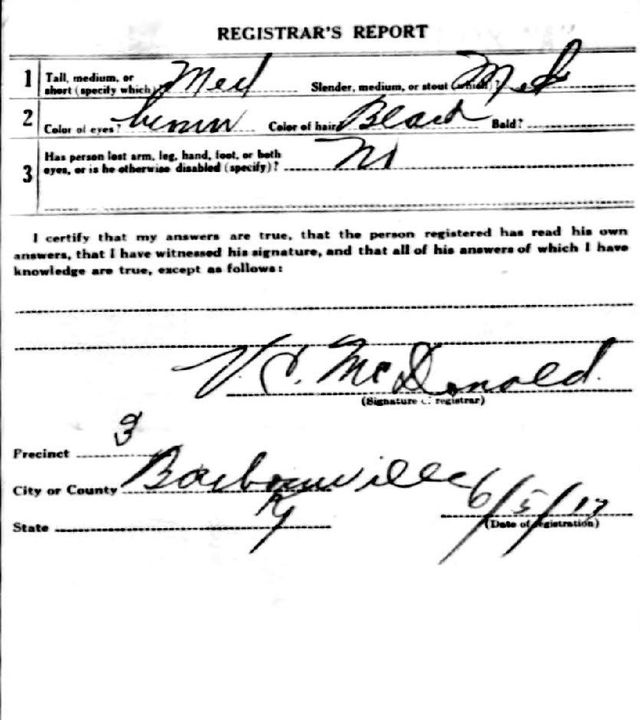 REGISTRAR'S REPORT
1 Tall, medium, or short (specify which)? Med Slender, medium, or stout (which)? Med
2 Color of eyes? brown Color of hair? Black Bald?
3 Has person lost arm, leg, hand, foot, or both
eyes, or is he otherwise disabled (specify)? No
I certify that my answers are true, that the person registered has read his own
answers, that I have witnessed his signature, and that all of his answers of which I have
knowledge are true, except as follows:
V. C. McDonald
(Signature of registrar)
Precinct 3
City or County Barbourville
State Ky 6/5/17
(Date of registration)